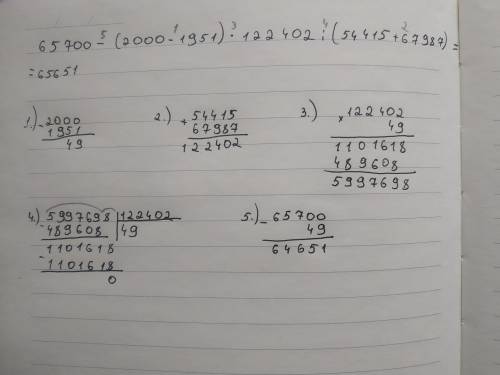 65700 - (2000 - 1951) · 122402 : (54415 + 67987) =
5 1 3 4 2
= 65651
1.) - 2000
1951
49
2.) + 54415
67987
122402
3.) × 122402
49
1101618
489608
5997698
4.) 5997698 | 122402
- 489608 | 49
1101618
- 1101618
0
5.) - 65700
49
64651